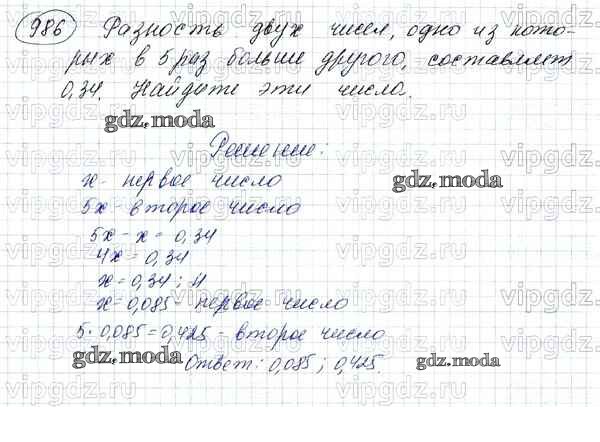 986 Разность двух чисел, одно из кото-
рых в 5 раз больше другого, составляет
0,34. Найдите эти числа.
gdz.moda
Решение:
gdz.moda
x - первое число
5x - второе число
5x - x = 0,34
4x = 0,34
x = 0,34 : 4
x = 0,085 - первое число
5 · 0,085 = 0,425 - второе число
gdz.moda
Ответ: 0,085 ; 0,425.
gdz.moda
vipgdz.ru